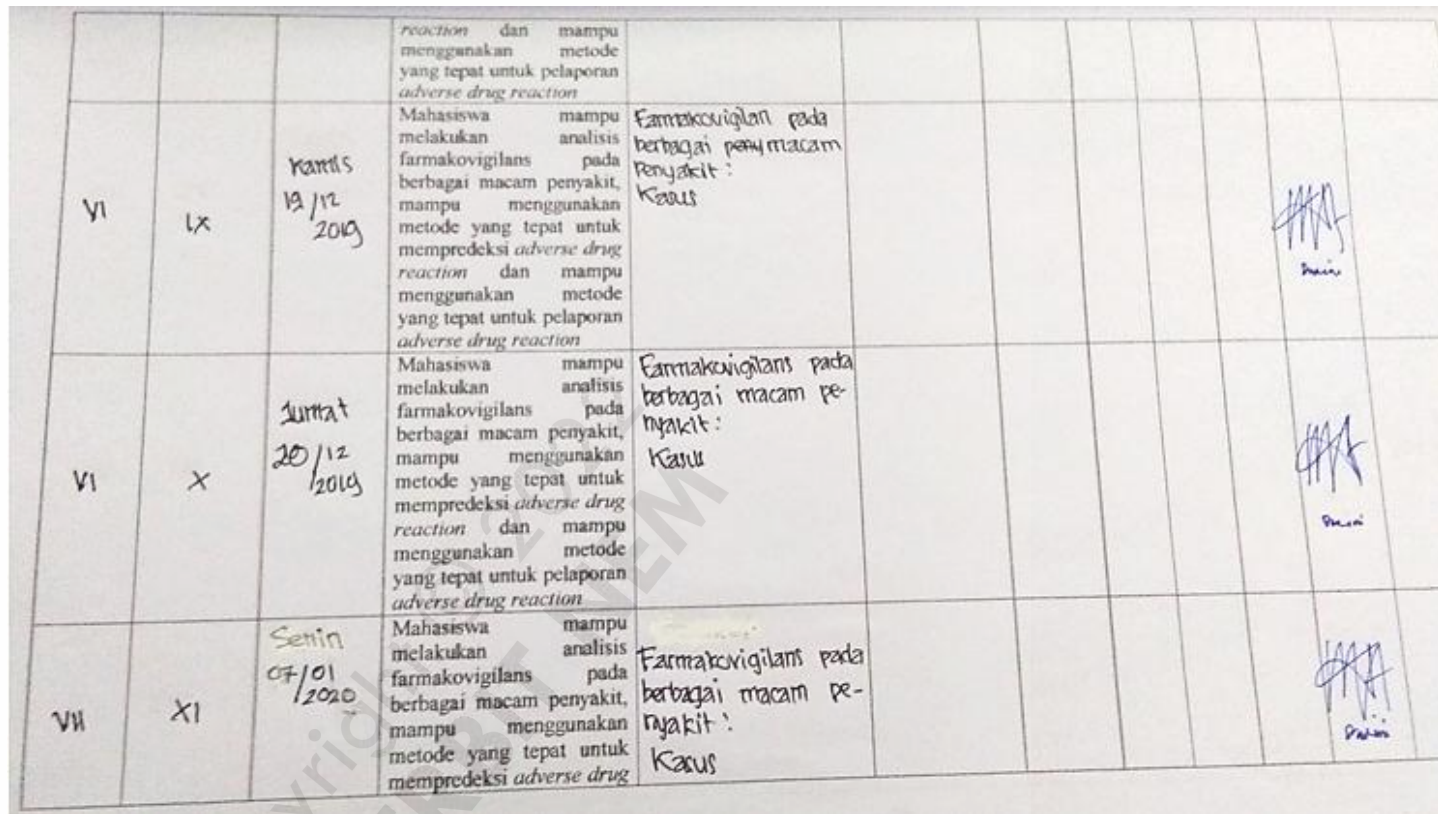 reaction dan mampu
menggunakan metode
yang tepat untuk pelaporan
adverse drug reaction
VI
IX
Kamis
19/12
2019
Mahasiswa mampu
melakukan analisis
farmakovigilans pada
berbagai macam penyakit,
mampu menggunakan
metode yang tepat untuk
mempredeksi adverse drug
reaction dan mampu
menggunakan metode
yang tepat untuk pelaporan
adverse drug reaction
Farmakovigilan pada
berbagai peny macam
Penyakit :
Kasus
VI
X
Jumat
20/12
2019
Mahasiswa mampu
melakukan analisis
farmakovigilans pada
berbagai macam penyakit,
mampu menggunakan
metode yang tepat untuk
mempredeksi adverse drug
reaction dan mampu
menggunakan metode
yang tepat untuk pelaporan
adverse drug reaction
Farmakovigilans pada
berbagai macam pe-
nyakit :
Kasus
VII
XI
Senin
07/01
2020
Mahasiswa mampu
melakukan analisis
farmakovigilans pada
berbagai macam penyakit,
mampu menggunakan
metode yang tepat untuk
mempredeksi adverse drug
Farmakovigilans pada
berbagai macam pe-
nyakit :
Kasus